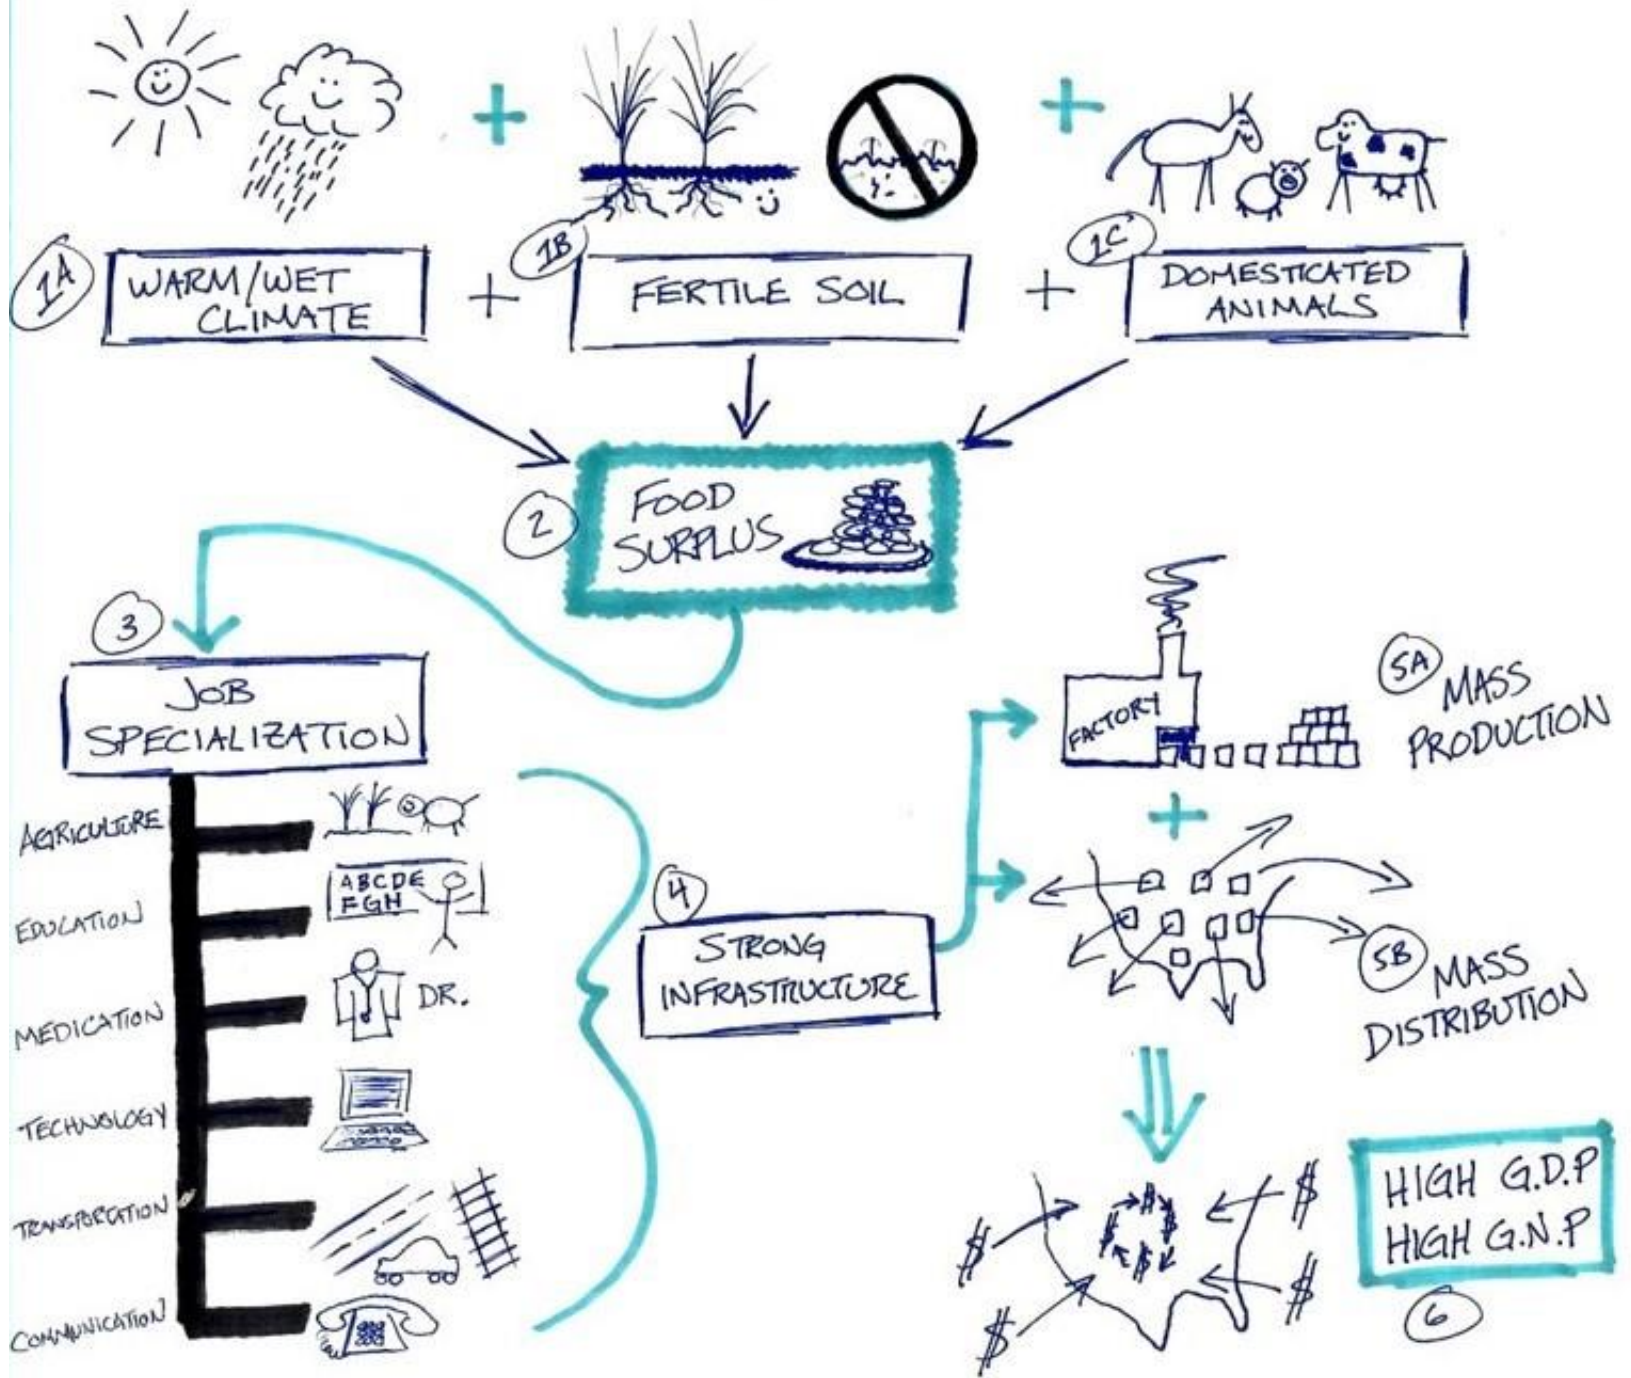 1A
WARM/WET
CLIMATE
+
1B
FERTILE SOIL
+
1C
DOMESTICATED
ANIMALS
2
FOOD
SURPLUS
3
JOB
SPECIALIZATION
AGRICULTURE
EDUCATION
ABCDE
FGH
MEDICATION
DR.
TECHNOLOGY
TRANSPORTATION
COMMUNICATION
4
STRONG
INFRASTRUCTURE
FACTORY
5A
MASS
PRODUCTION
+
5B
MASS
DISTRIBUTION
$
$
$
$
$
$
$
$
HIGH G.D.P
HIGH G.N.P
6